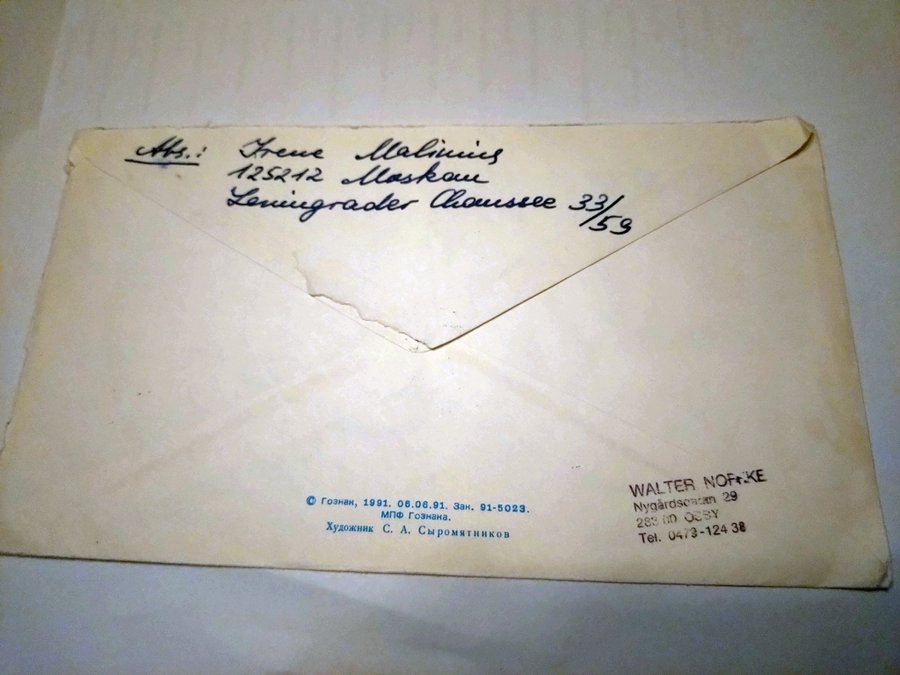 Abs.: Irene Malinina
125212 Moskau
Leningrader Chaussee 33/59
© Гознак, 1991. 06.06.91. Зак. 91-5023.
МПФ Гознака.
Художник С. А. Сыромятников
WALTER
29
283 00 OSBY
Tel. 0479-124 38